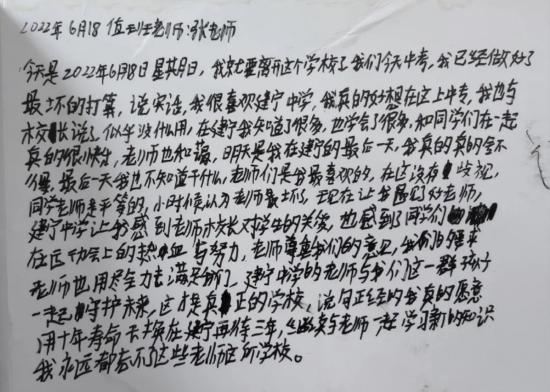 2022年6月18 值班老师:张老师
今天是2022年6月8日星期日,我就要离开这个学校了我们今天中考,我已经做好了
最坏的打算,说实话,我很喜欢建宁中学,我真的好想在这上中考,我也与
校长说了似乎没什么用,在建宁我知道了很多,也学会了很多,和同学们在一起
真的很快乐,老师也和蔼,明天是我在建宁的最后一天,我真的真的舍不
得 最后一天我也不知道干什么,老师们是我最喜欢的,在这没有歧视,
同学老师是平等的,小时候认为老师最坏了,现在让我遇见了好老师,
建宁中学让我感到老师校长对学生的关爱,也感到同学们
在运动会上的热血与努力,老师尊重我们的意见,我们的
老师也用尽全力去满足我们,建宁中学的老师与我们这一群孩子
一起守护未来,这才是真正的学校,说句正经的我真的愿意
用十年寿命去换在建宁再待三年,继续与老师一起学习新的知识
我永远都忘不了这些老师这所学校。